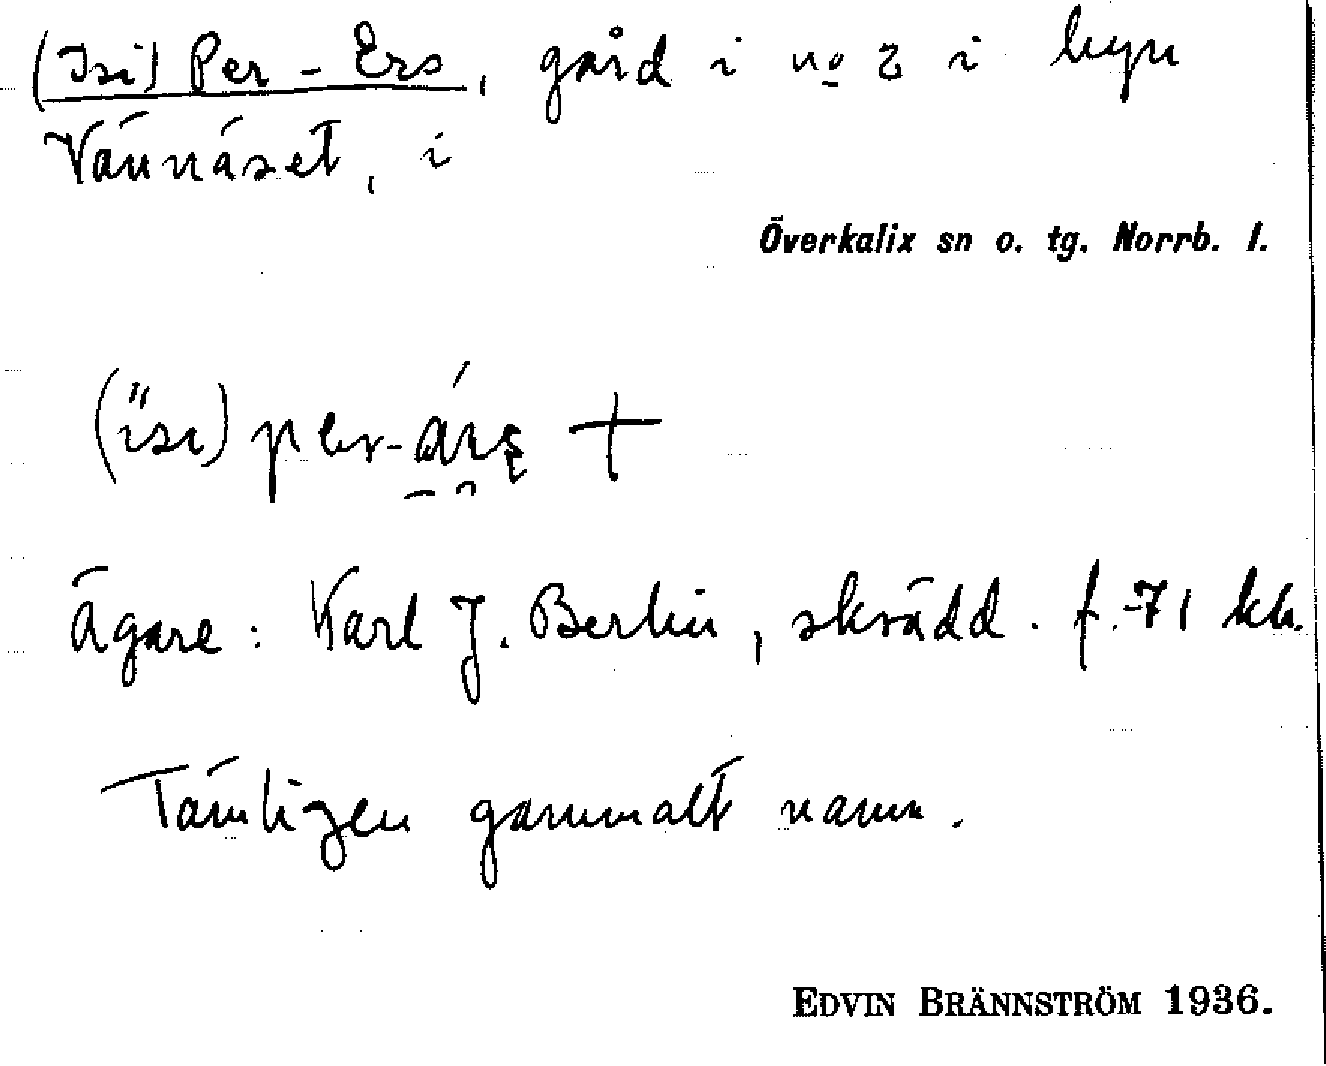 (Isi) Per-Ers, gård i no 2 i byn
Vännäset, i
Överkalix sn o. tg. Norrb. l.
(i̋si) per-árs +
Ägare: Karl J. Berlin, skrädd. f. -71 kh.
Tämligen gammalt namn.
EDVIN BRÄNNSTRÖM 1936.